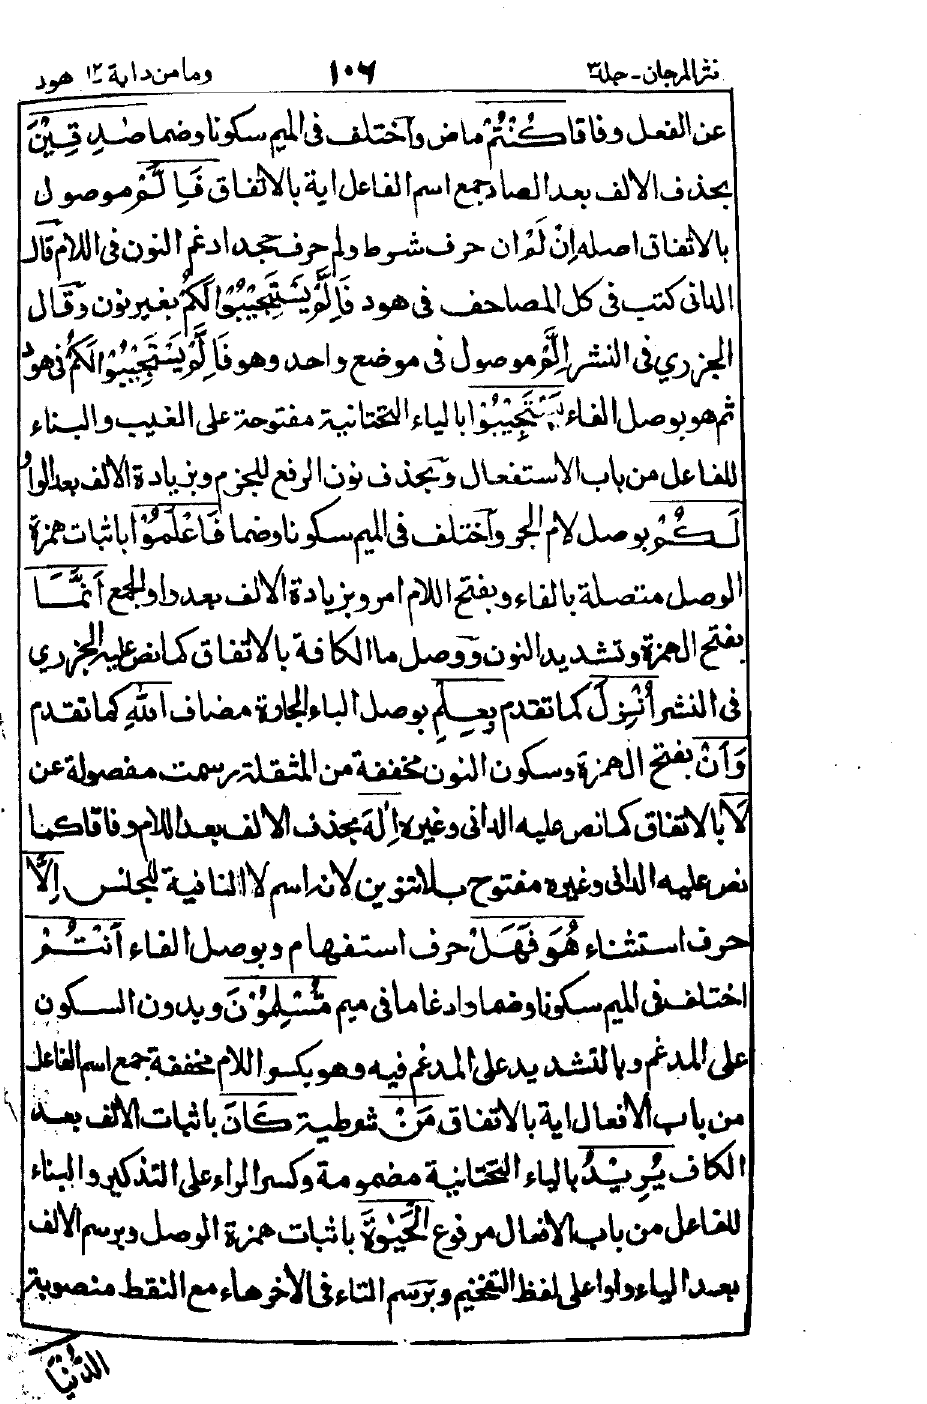 نثر المرجان - جلد٣ ١٠٦ وما من دابة ١٢ هود
عن الفعل وفاقا كُنْتُمْ ماض واختلف فى الميم سكونا وضما صٰدِقِيْنَ
بحذف الالف بعد الصاد جمع اسم الفاعل اية بالاتفاق فَاِلَّمْ موصول
بالاتفاق اصله اِنْ لَمْ ان حرف شرط ولم حرف جحد ادغم النون فى اللام قال
الدانى كتب فى كل المصاحف فى هود فَاِلَّمْ يَسْتَجِيْبُوْا لَكُمْ بغير نون وقال
الجزري فى النشر اِلَّمْ موصول فى موضع واحد وهو فَاِلَّمْ يَسْتَجِيْبُوْا لَكُمْ فى هود
ثم هو بوصل الفاء يَسْتَجِيْبُوْا بالياء التحتانية مفتوحة على الغيب والبناء
للفاعل من باب الاستفعال وبحذف نون الرفع للجزم وبزيادة الالف بعد الواو
لَكُمْ بوصل لام الجر واختلف فى الميم سكونا وضما فَاعْلَمُوْا باثبات همزة
الوصل متصلة بالفاء وبفتح اللام امر وبزيادة الالف بعد واو الجمع اَنَّمَا
بفتح الهمزة وتشديد النون ووصل ما الكافة بالاتفاق كما نص عليه الجزري
فى النشر اُنْزِلَ كما تقدم بِعِلْمِ بوصل الباء الجارة مضاف اللهِ كما تقدم
وَاَنْ بفتح الهمزة وسكون النون مخففة من المثقلة رسمت مفصولة عن
لَا بالاتفاق كما نص عليه الدانى وغيره اِلٰهَ بحذف الالف بعد اللام وفاقا كما
نص عليه الدانى وغيره مفتوح بلا تنوين لانه اسم لا النافية للجنس اِلَّا
حرف استثناء هُوَ فَهَلْ حرف استفهام وبوصل الفاء اَنْتُمْ
اختلف فى الميم سكونا وضما وادغاما فى ميم مُّسْلِمُوْنَ وبدون السكون
على المدغم وبالتشديد على المدغم فيه وهو بكسر اللام مخففة جمع اسم الفاعل
من باب الافعال اية بالاتفاق مَنْ شرطية كَانَ باثبات الالف بعد
الكاف يُرِيْدُ بالياء التحتانية مضمومة وكسر الراء على التذكير والبناء
للفاعل من باب الافعال مرفوع الْحَيٰوةَ باثبات همزة الوصل وبرسم الالف
بعد الياء واوا على لفظ التفخيم وبرسم التاء فى الاخر هاء مع النقط منصوبة
الدُّنْيَا